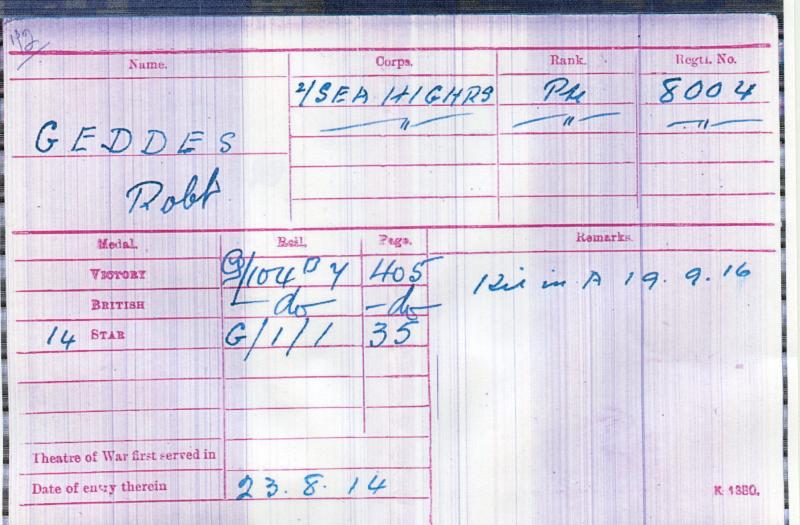 Name. Corps. Rank. Regtl. No.
2/SEA HIGHRS Pte 8004
" " "
GEDDES
Robt
Medal. Roll. Page. Remarks.
VICTORY 405 19.9.16
BRITISH -do- -do-
14 STAR G/1/1 35
Theatre of War first served in
Date of entry therein 23.8.14
K 1380.